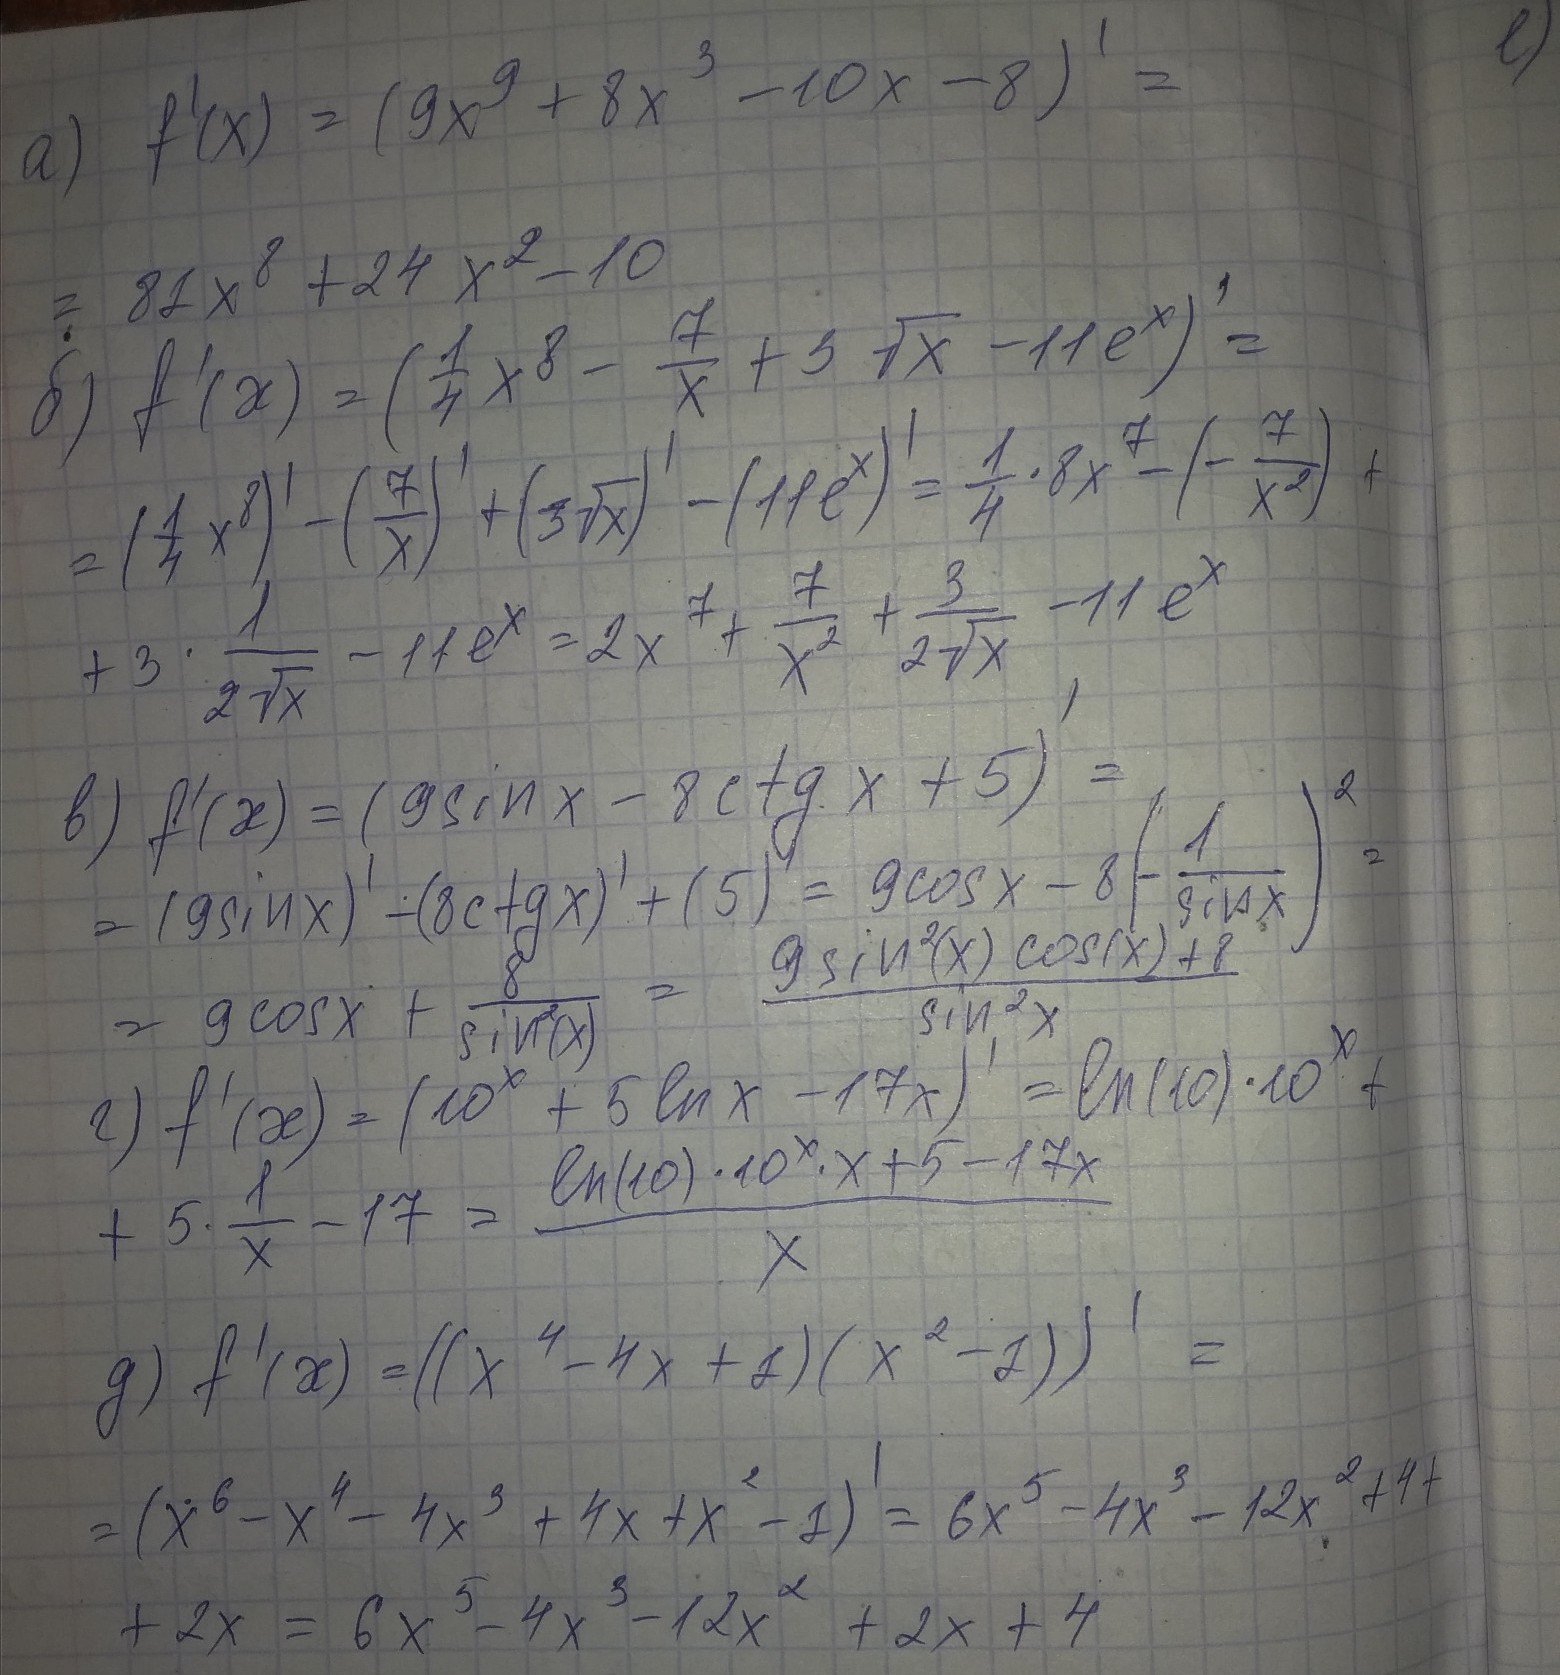 а) f'(x) = (9x⁹ + 8x³ - 10x - 8)' =
= 81x⁸ + 24x² - 10
б) f'(x) = (1/4 x⁸ - 7/x + 3√x - 11eˣ)' =
= (1/4 x⁸)' - (7/x)' + (3√x)' - (11eˣ)' = 1/4 · 8x⁷ - (-7/x²) +
+ 3 · 1/(2√x) - 11eˣ = 2x⁷ + 7/x² + 3/(2√x) - 11eˣ
в) f'(x) = (9sinx - 8ctgx + 5)' =
= (9sinx)' - (8ctgx)' + (5)' = 9cosx - 8(-1/sinx)² =
= 9cosx + 8/sin²(x) = (9sin²(x) cos(x) + 8)/sin²x
г) f'(x) = (10ˣ + 5lnx - 17x)' = ln(10)·10ˣ +
+ 5 · 1/x - 17 = (ln(10)·10ˣ·x + 5 - 17x)/x
д) f'(x) = ((x⁴ - 4x + 1)(x² - 1))' =
= (x⁶ - x⁴ - 4x³ + 4x + x² - 1)' = 6x⁵ - 4x³ - 12x² + 4 +
+ 2x = 6x⁵ - 4x³ - 12x² + 2x + 4
е)